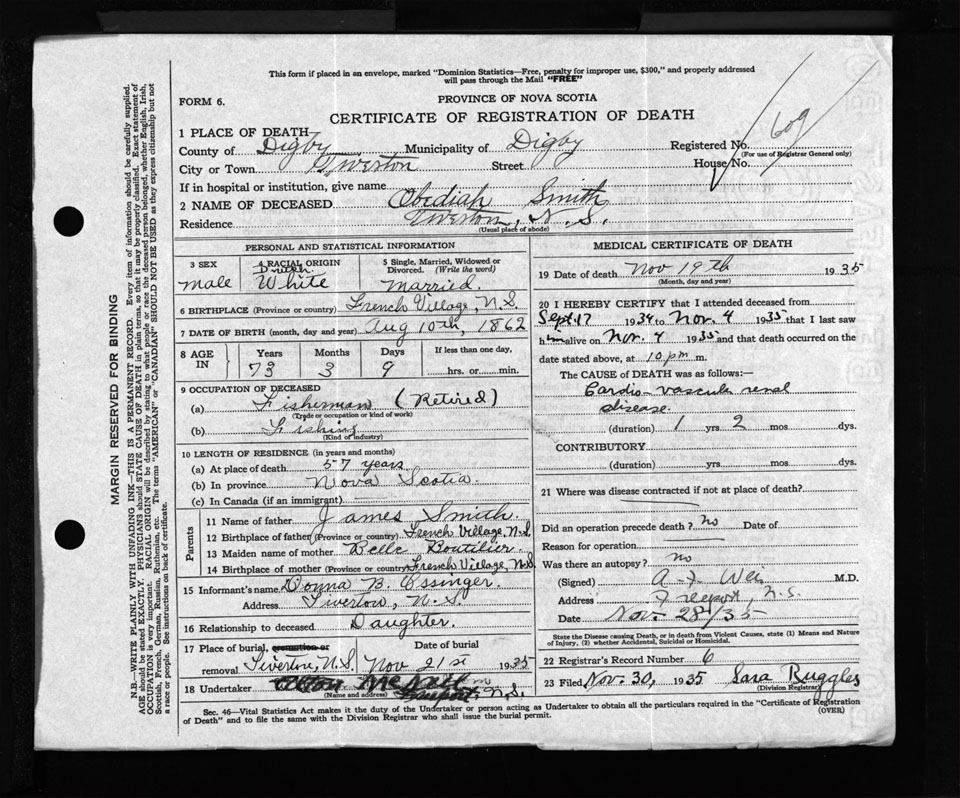 This form if placed in an envelope, marked "Dominion Statistics—Free, penalty for improper use, $300," and properly addressed
will pass through the Mail "FREE"
FORM 6.
PROVINCE OF NOVA SCOTIA
CERTIFICATE OF REGISTRATION OF DEATH
609
1 PLACE OF DEATH
County of Digby Municipality of Digby Registered No.
(For use of Registrar General only)
City or Town Tiverton Street House No.
If in hospital or institution, give name
2 NAME OF DECEASED Obediah Smith
Residence Tiverton, N.S.
(Usual place of abode)
PERSONAL AND STATISTICAL INFORMATION
3 SEX 4 RACIAL ORIGIN 5 Single, Married, Widowed or
Divorced. (Write the word)
Dutch
male White married.
6 BIRTHPLACE (Province or country) French Village, N.S.
7 DATE OF BIRTH (month, day and year) Aug 10th, 1862
8 AGE IN Years Months Days If less than one day,
73 3 9 hrs. or min.
9 OCCUPATION OF DECEASED
(a) Fisherman (Retired)
(Trade or occupation or kind of work)
(b) Fishing
(Kind of industry)
10 LENGTH OF RESIDENCE (in years and months)
(a) At place of death 57 years
(b) In province Nova Scotia
(c) In Canada (if an immigrant)
Parents
11 Name of father James Smith
12 Birthplace of father (Province or country) French Village, N.S.
13 Maiden name of mother Belle Boutilier
14 Birthplace of mother (Province or country) French Village, N.S.
15 Informant's name Donna B. Ossinger.
Address Tiverton, N.S.
16 Relationship to deceased Daughter.
17 Place of burial, cremation or Date of burial
removal Tiverton, N.S. Nov 21st 1935
18 Undertaker McNeill
(Name and address) Freeport N.S.
MEDICAL CERTIFICATE OF DEATH
19 Date of death Nov 19th 1935
(Month, day and year)
20 I HEREBY CERTIFY that I attended deceased from
Sept. 17 1934 to Nov. 4 1935 that I last saw
him alive on Nov. 4 1935 and that death occurred on the
date stated above, at 10 pm m.
The CAUSE OF DEATH was as follows:—
Cardio-vascular renal
disease.
(duration) 1 yrs. 2 mos dys.
CONTRIBUTORY
(duration) yrs. mos dys.
21 Where was disease contracted if not at place of death?
Did an operation precede death? no Date of
Reason for operation
Was there an autopsy? no
(Signed) A. F. M.D.
Address Freeport, N.S.
Date Nov. 28/35
State the Disease causing Death, or in death from Violent Causes, state (1) Means and Nature
of Injury, (2) whether Accidental, Suicidal or Homicidal.
22 Registrar's Record Number 6
23 Filed Nov. 30, 1935 Sara Ruggles
(Division Registrar)
Sec. 46—Vital Statistics Act makes it the duty of the Undertaker or person acting as Undertaker to obtain all the particulars required in the "Certificate of Registration
of Death" and to file the same with the Division Registrar who shall issue the burial permit. (OVER)
MARGIN RESERVED FOR BINDING
N.B.—WRITE PLAINLY WITH UNFADING INK—THIS IS A PERMANENT RECORD. Every item of information should be carefully supplied.
AGE should be stated EXACTLY. PHYSICIANS should STATE CAUSE OF DEATH in plain terms, so that it may be properly classified. Exact statement of
OCCUPATION is very important. RACIAL ORIGIN will be described by stating to what people or race the deceased person belonged, whether English, Irish,
Scottish, French, German, Russian, Ruthenian, etc. The terms "AMERICAN" or "CANADIAN" SHOULD NOT BE USED as they express citizenship but not
a race or people. See instructions on back of certificate.